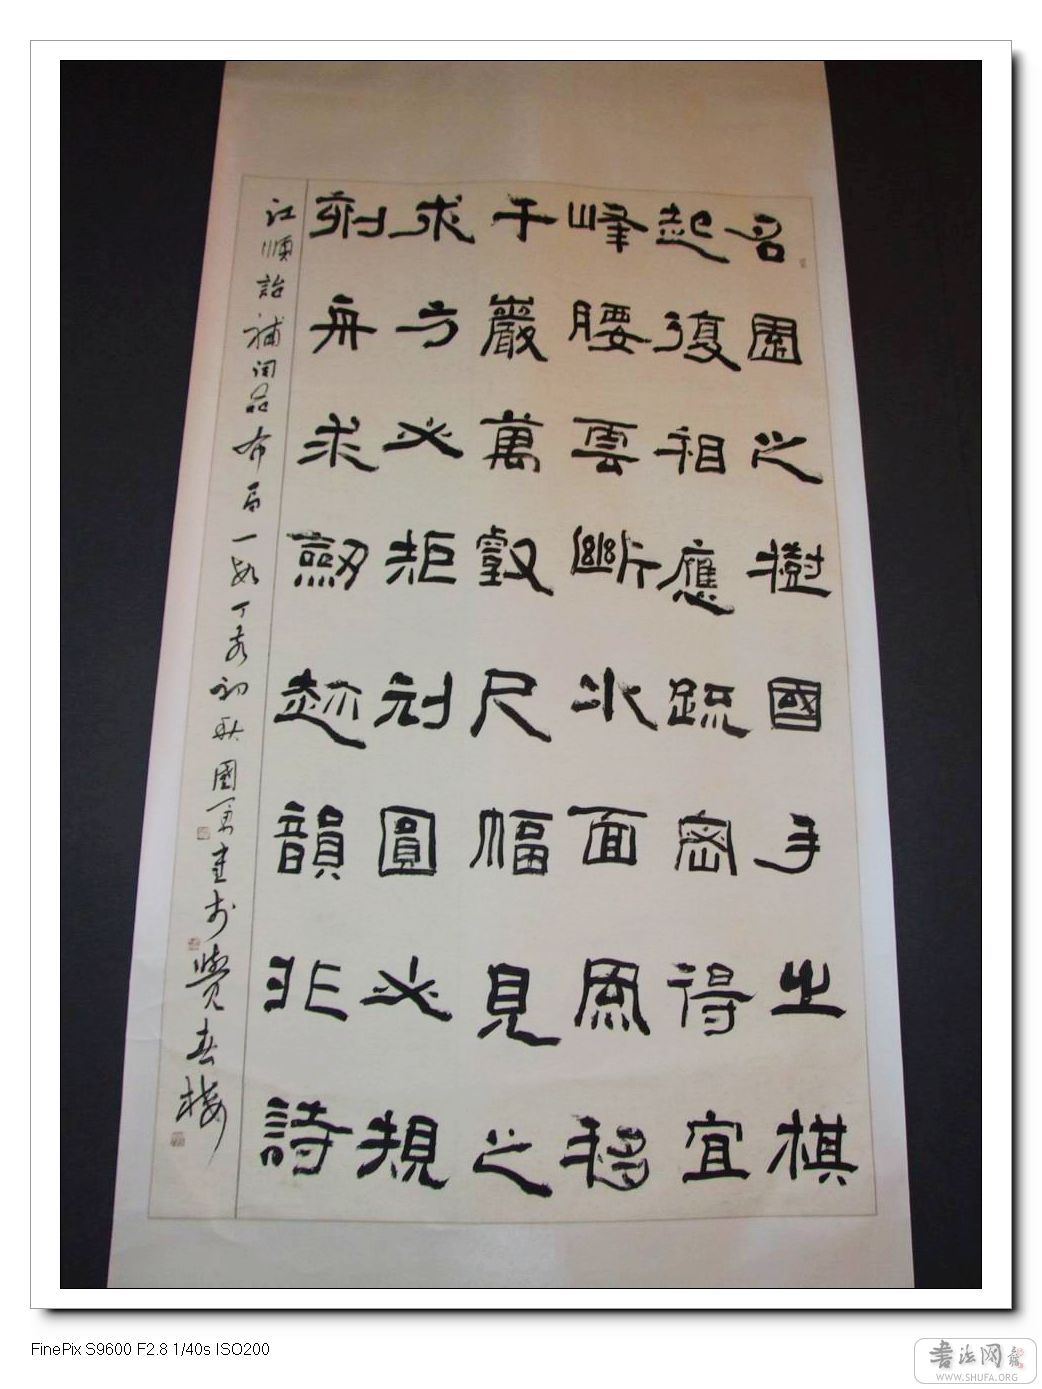 名園之樹國手之棋
起復相應疏密得宜
峰腰雲斷水面風移
千巖萬壑尺幅見之
求方必矩刓圓必規
刻舟求劍趂韻非詩
江順詒補詞品布局一段丁亥初秋國軍書於覺春樓
FinePix S9600 F2.8 1/40s ISO200
書法网
WWW.SHUFA.ORG